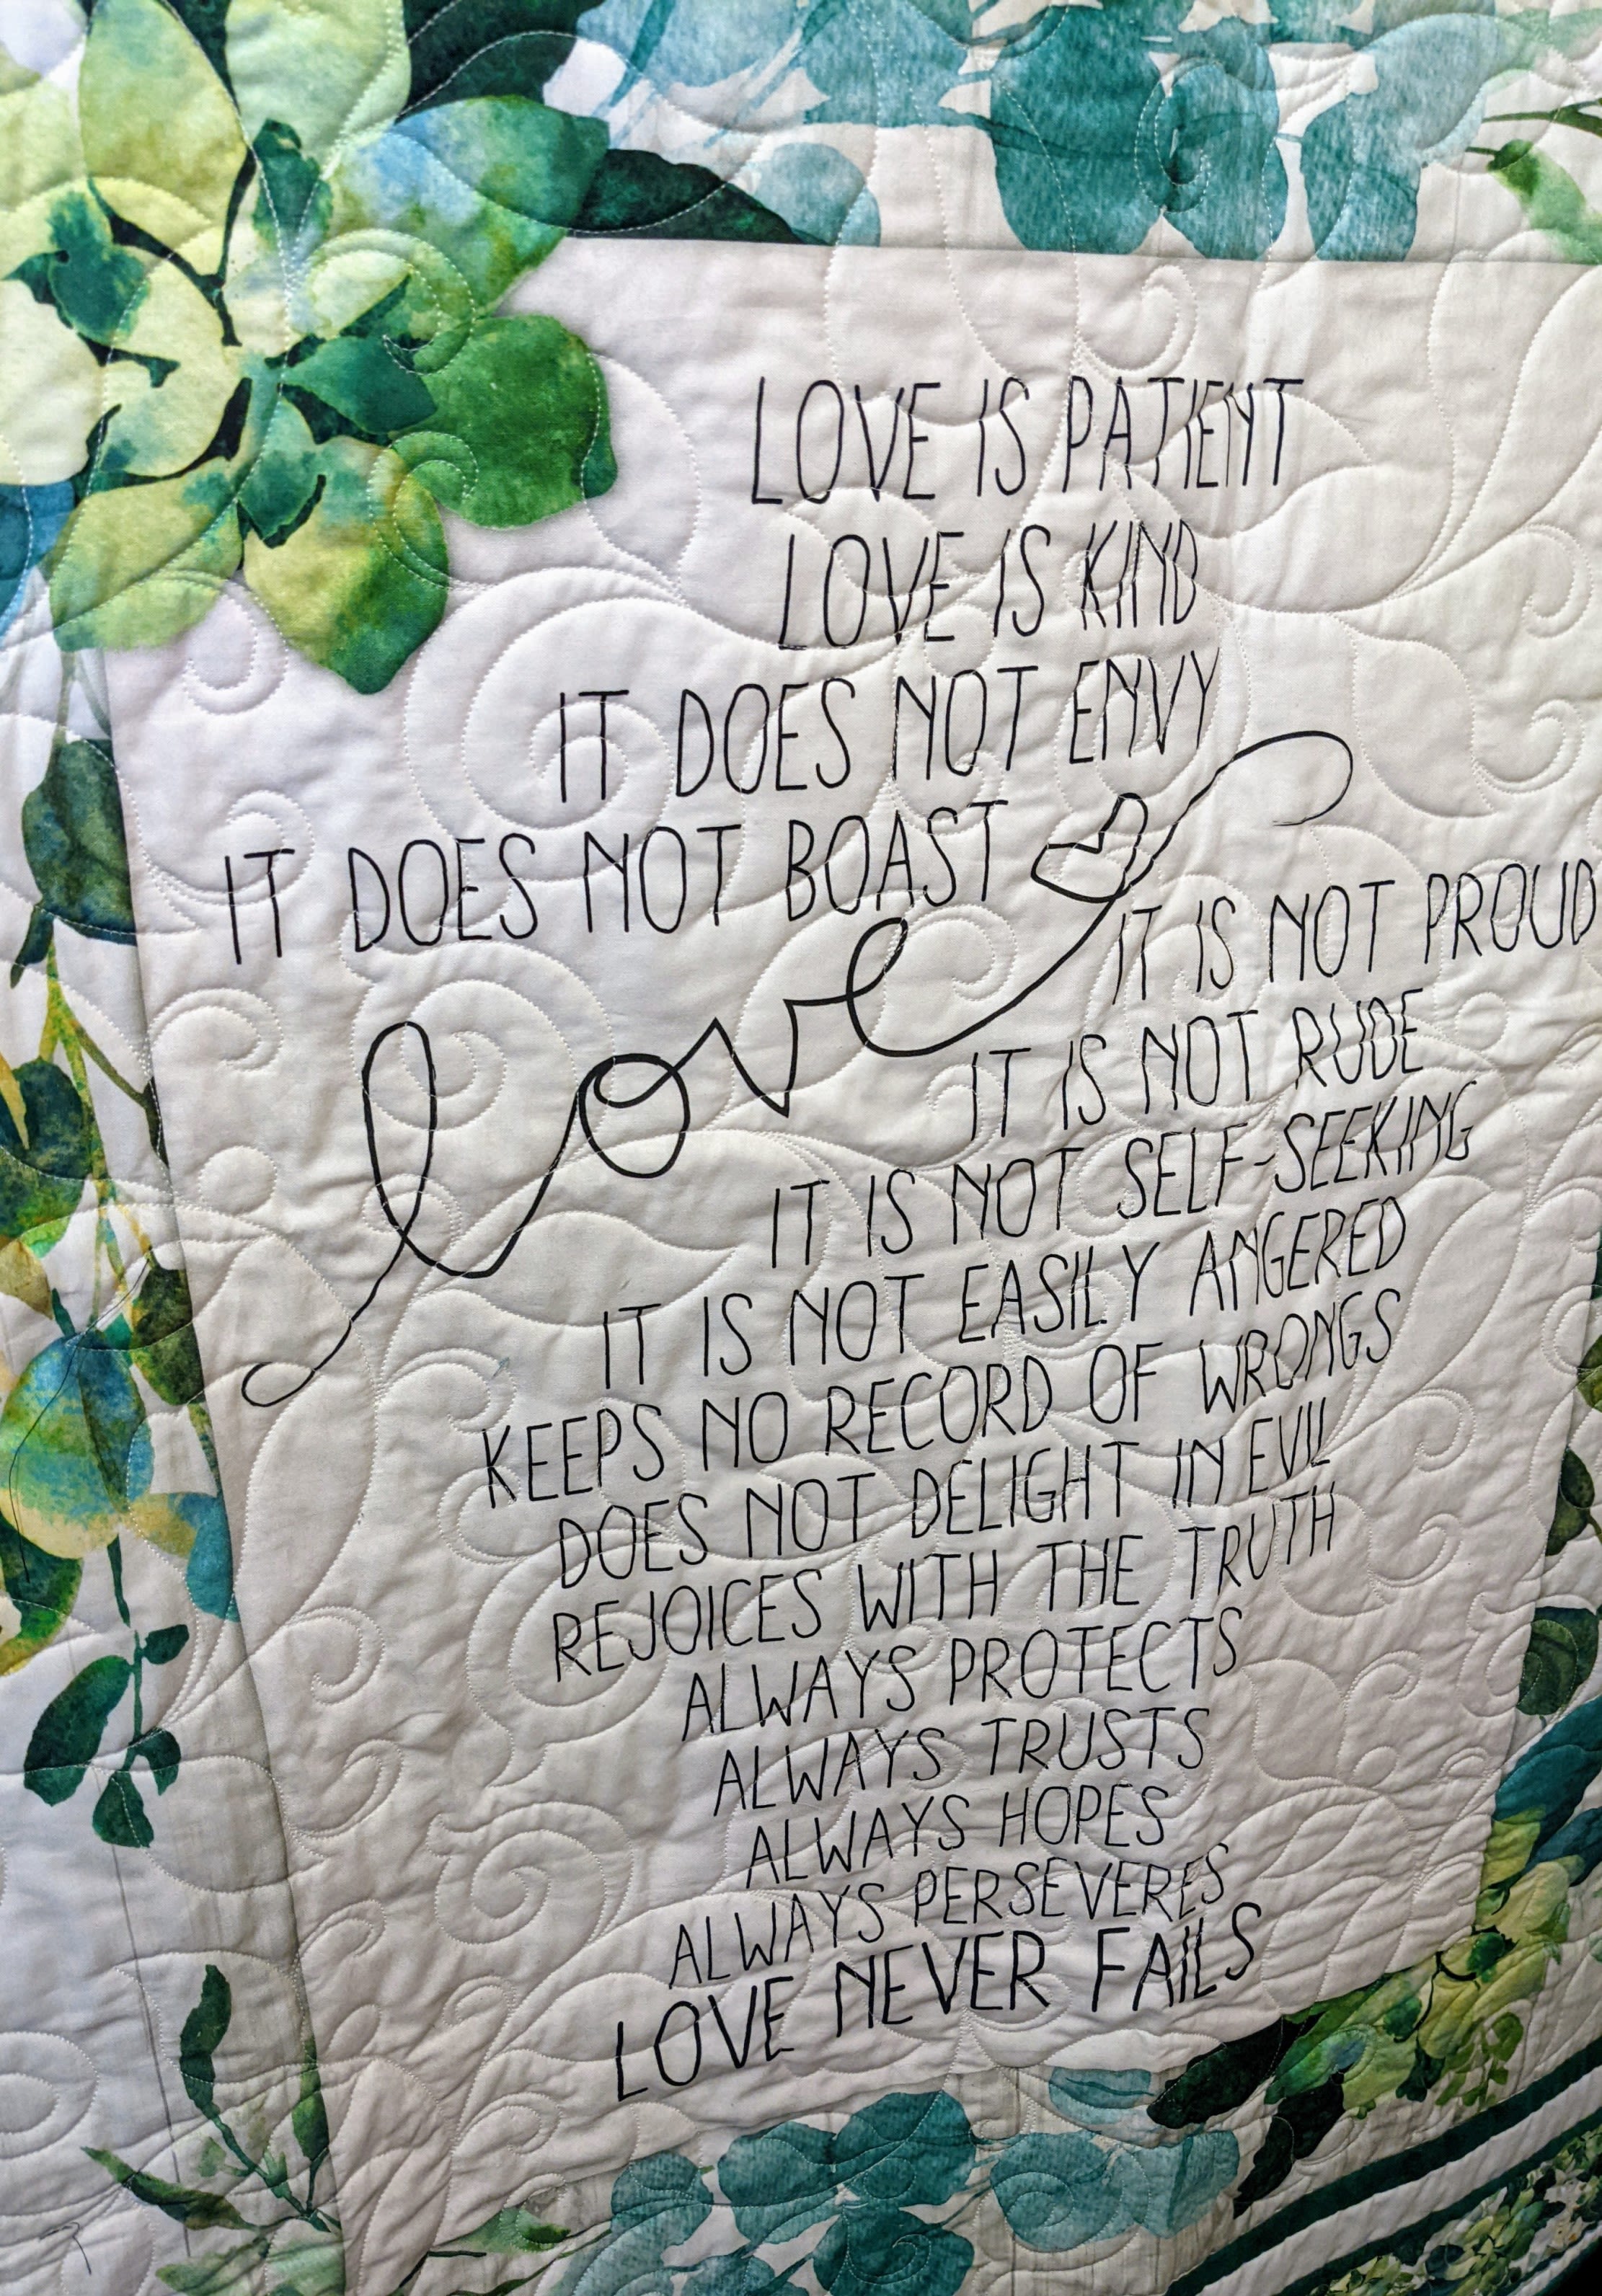 LOVE IS PATIENT
LOVE IS KIND
IT DOES NOT ENVY
IT DOES NOT BOAST
love
IT IS NOT PROUD
IT IS NOT RUDE
IT IS NOT SELF-SEEKING
IT IS NOT EASILY ANGERED
KEEPS NO RECORD OF WRONGS
DOES NOT DELIGHT IN EVIL
REJOICES WITH THE TRUTH
ALWAYS PROTECTS
ALWAYS TRUSTS
ALWAYS HOPES
ALWAYS PERSEVERES
LOVE NEVER FAILS